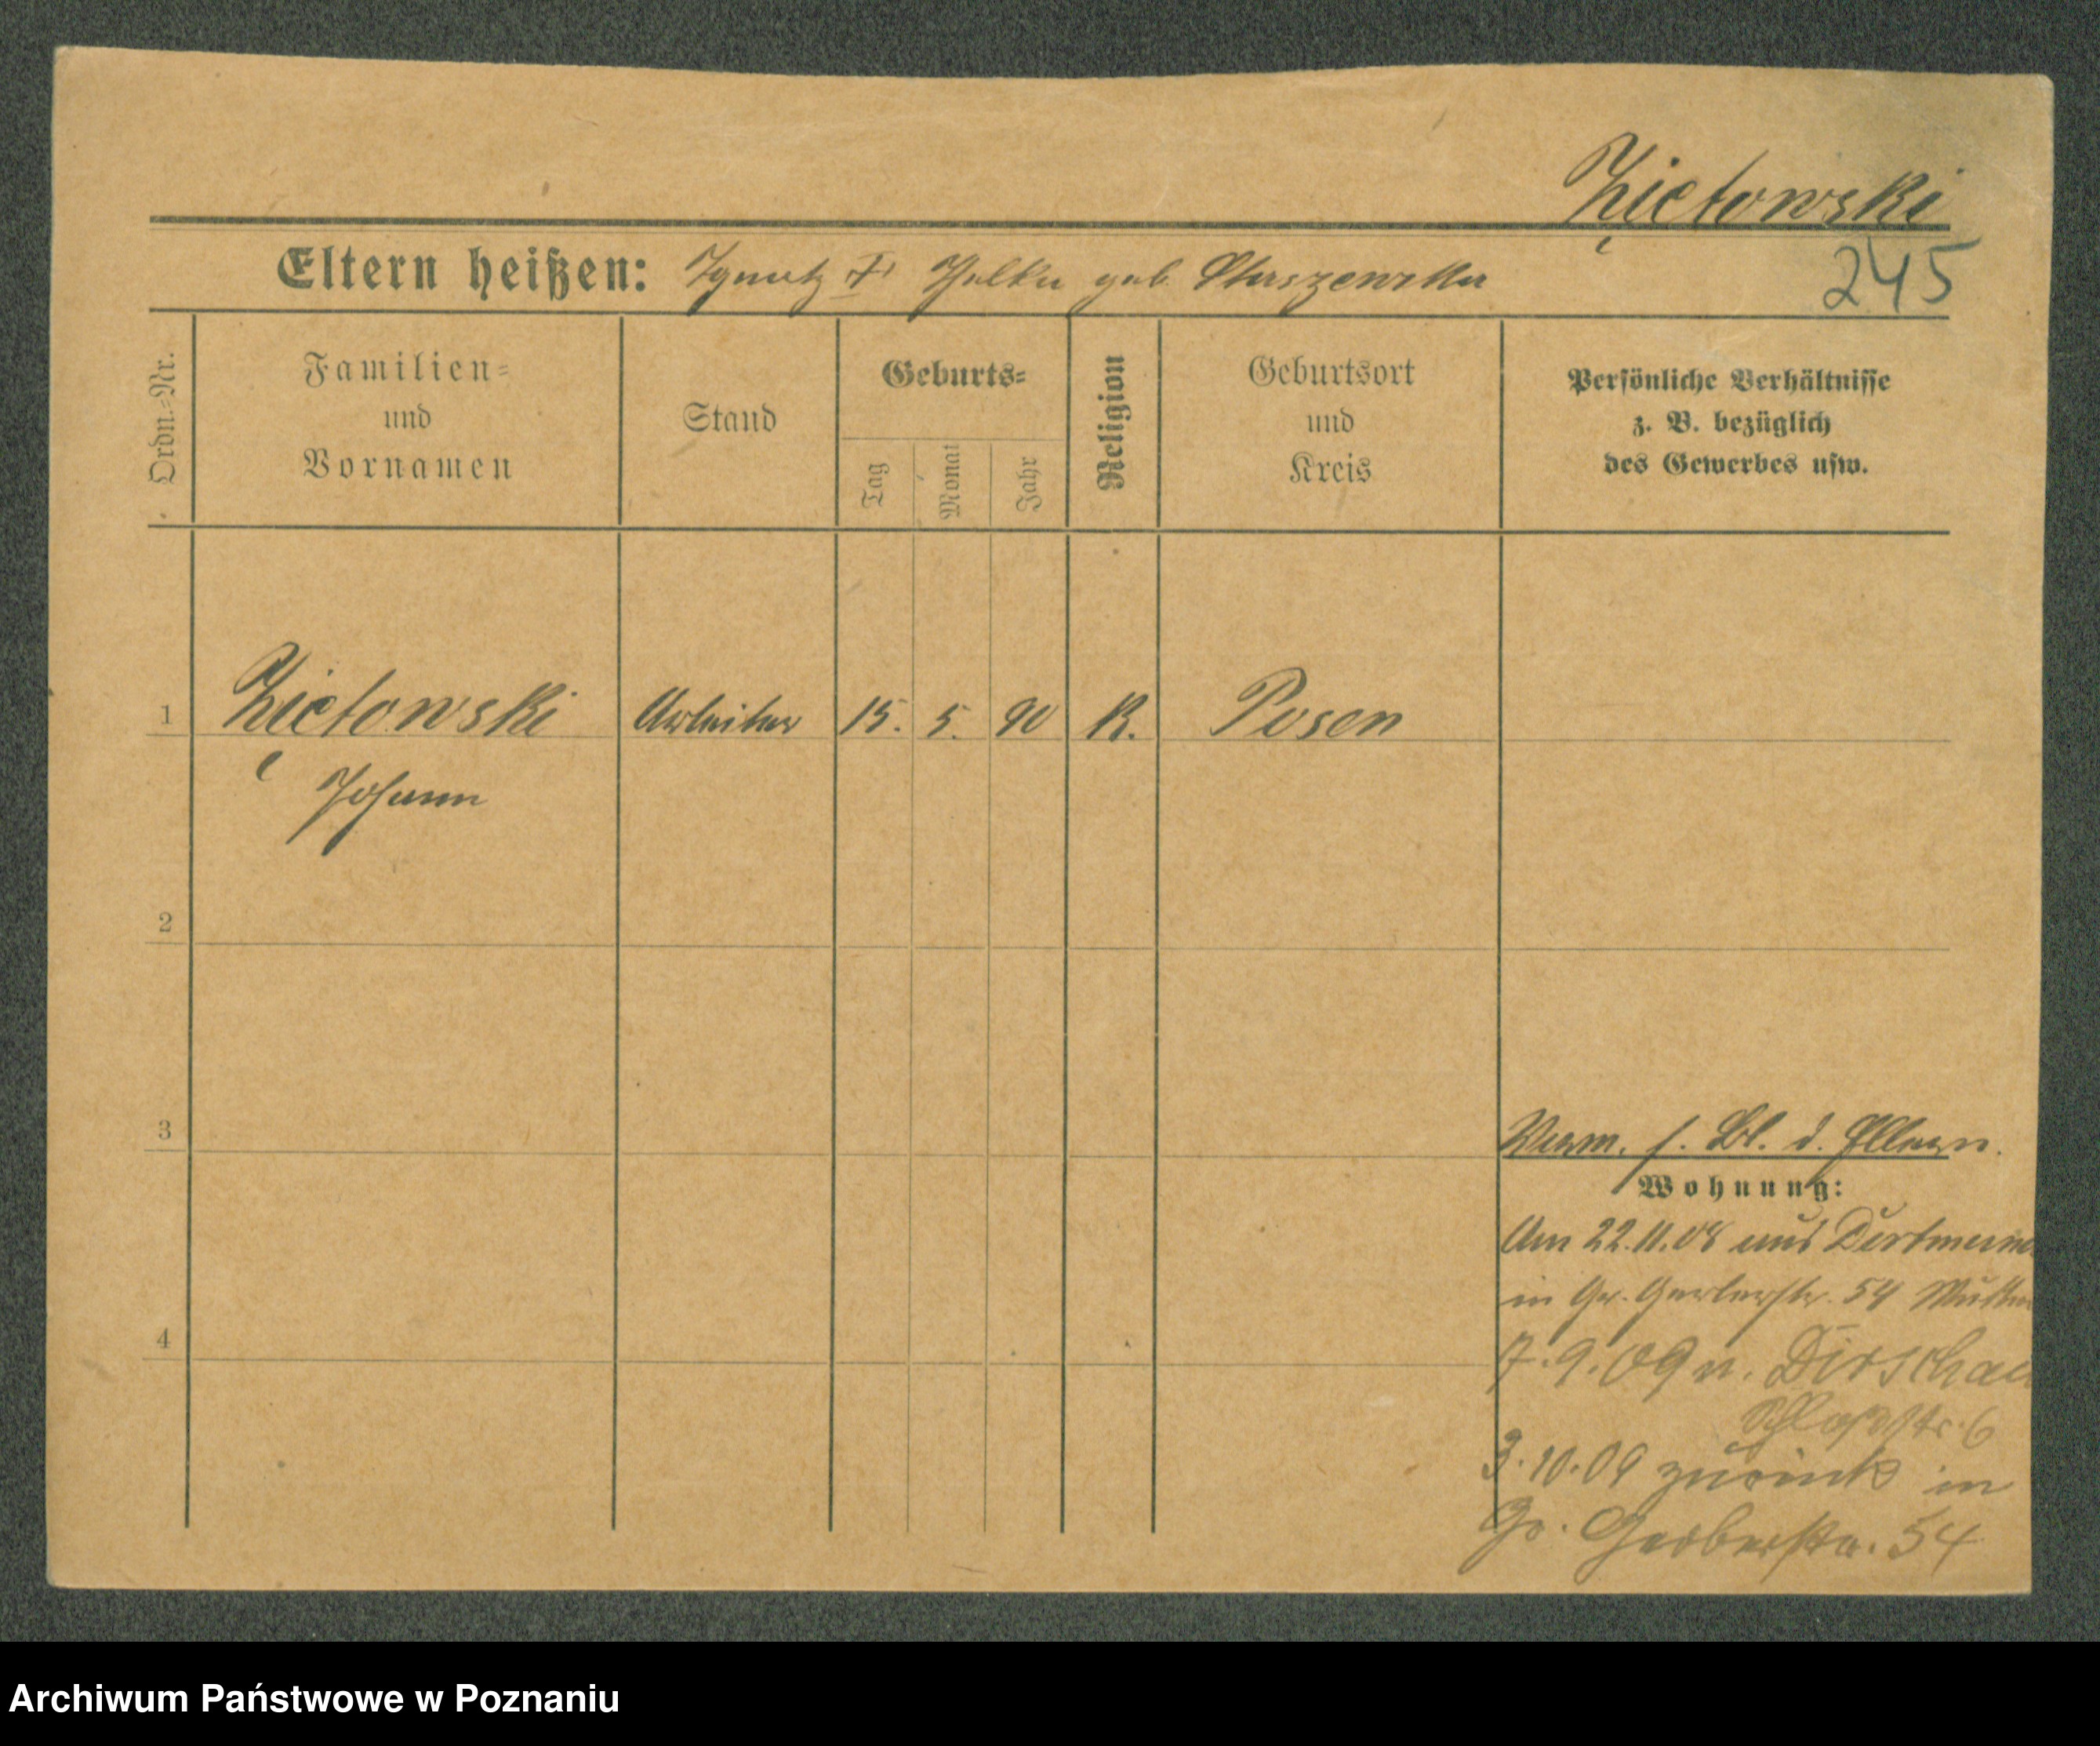 Ziętowski
245
Eltern heißen: Ignatz † geb. Staszewska
Ordn.-Nr.
Familien-
und
Vornamen
Stand
Geburts-
Tag
Monat
Jahr
Religion
Geburtsort
und
Kreis
Persönliche Verhältnisse
z. B. bezüglich
des Gewerbes usw.
1 Ziętowski Arbeiter 15. 5. 90 K. Posen
Johann
2
3
Verm. s. Bl. d. Eltern.
Wohnung:
Am 22.11.08 aus
in Gr. Gerberstr. 54 Mutter
7.9.09 n. Dirschau
Schloßstr. 6
3.10.09 zurück in
Gr. Gerberstr. 54
4
Archiwum Państwowe w Poznaniu